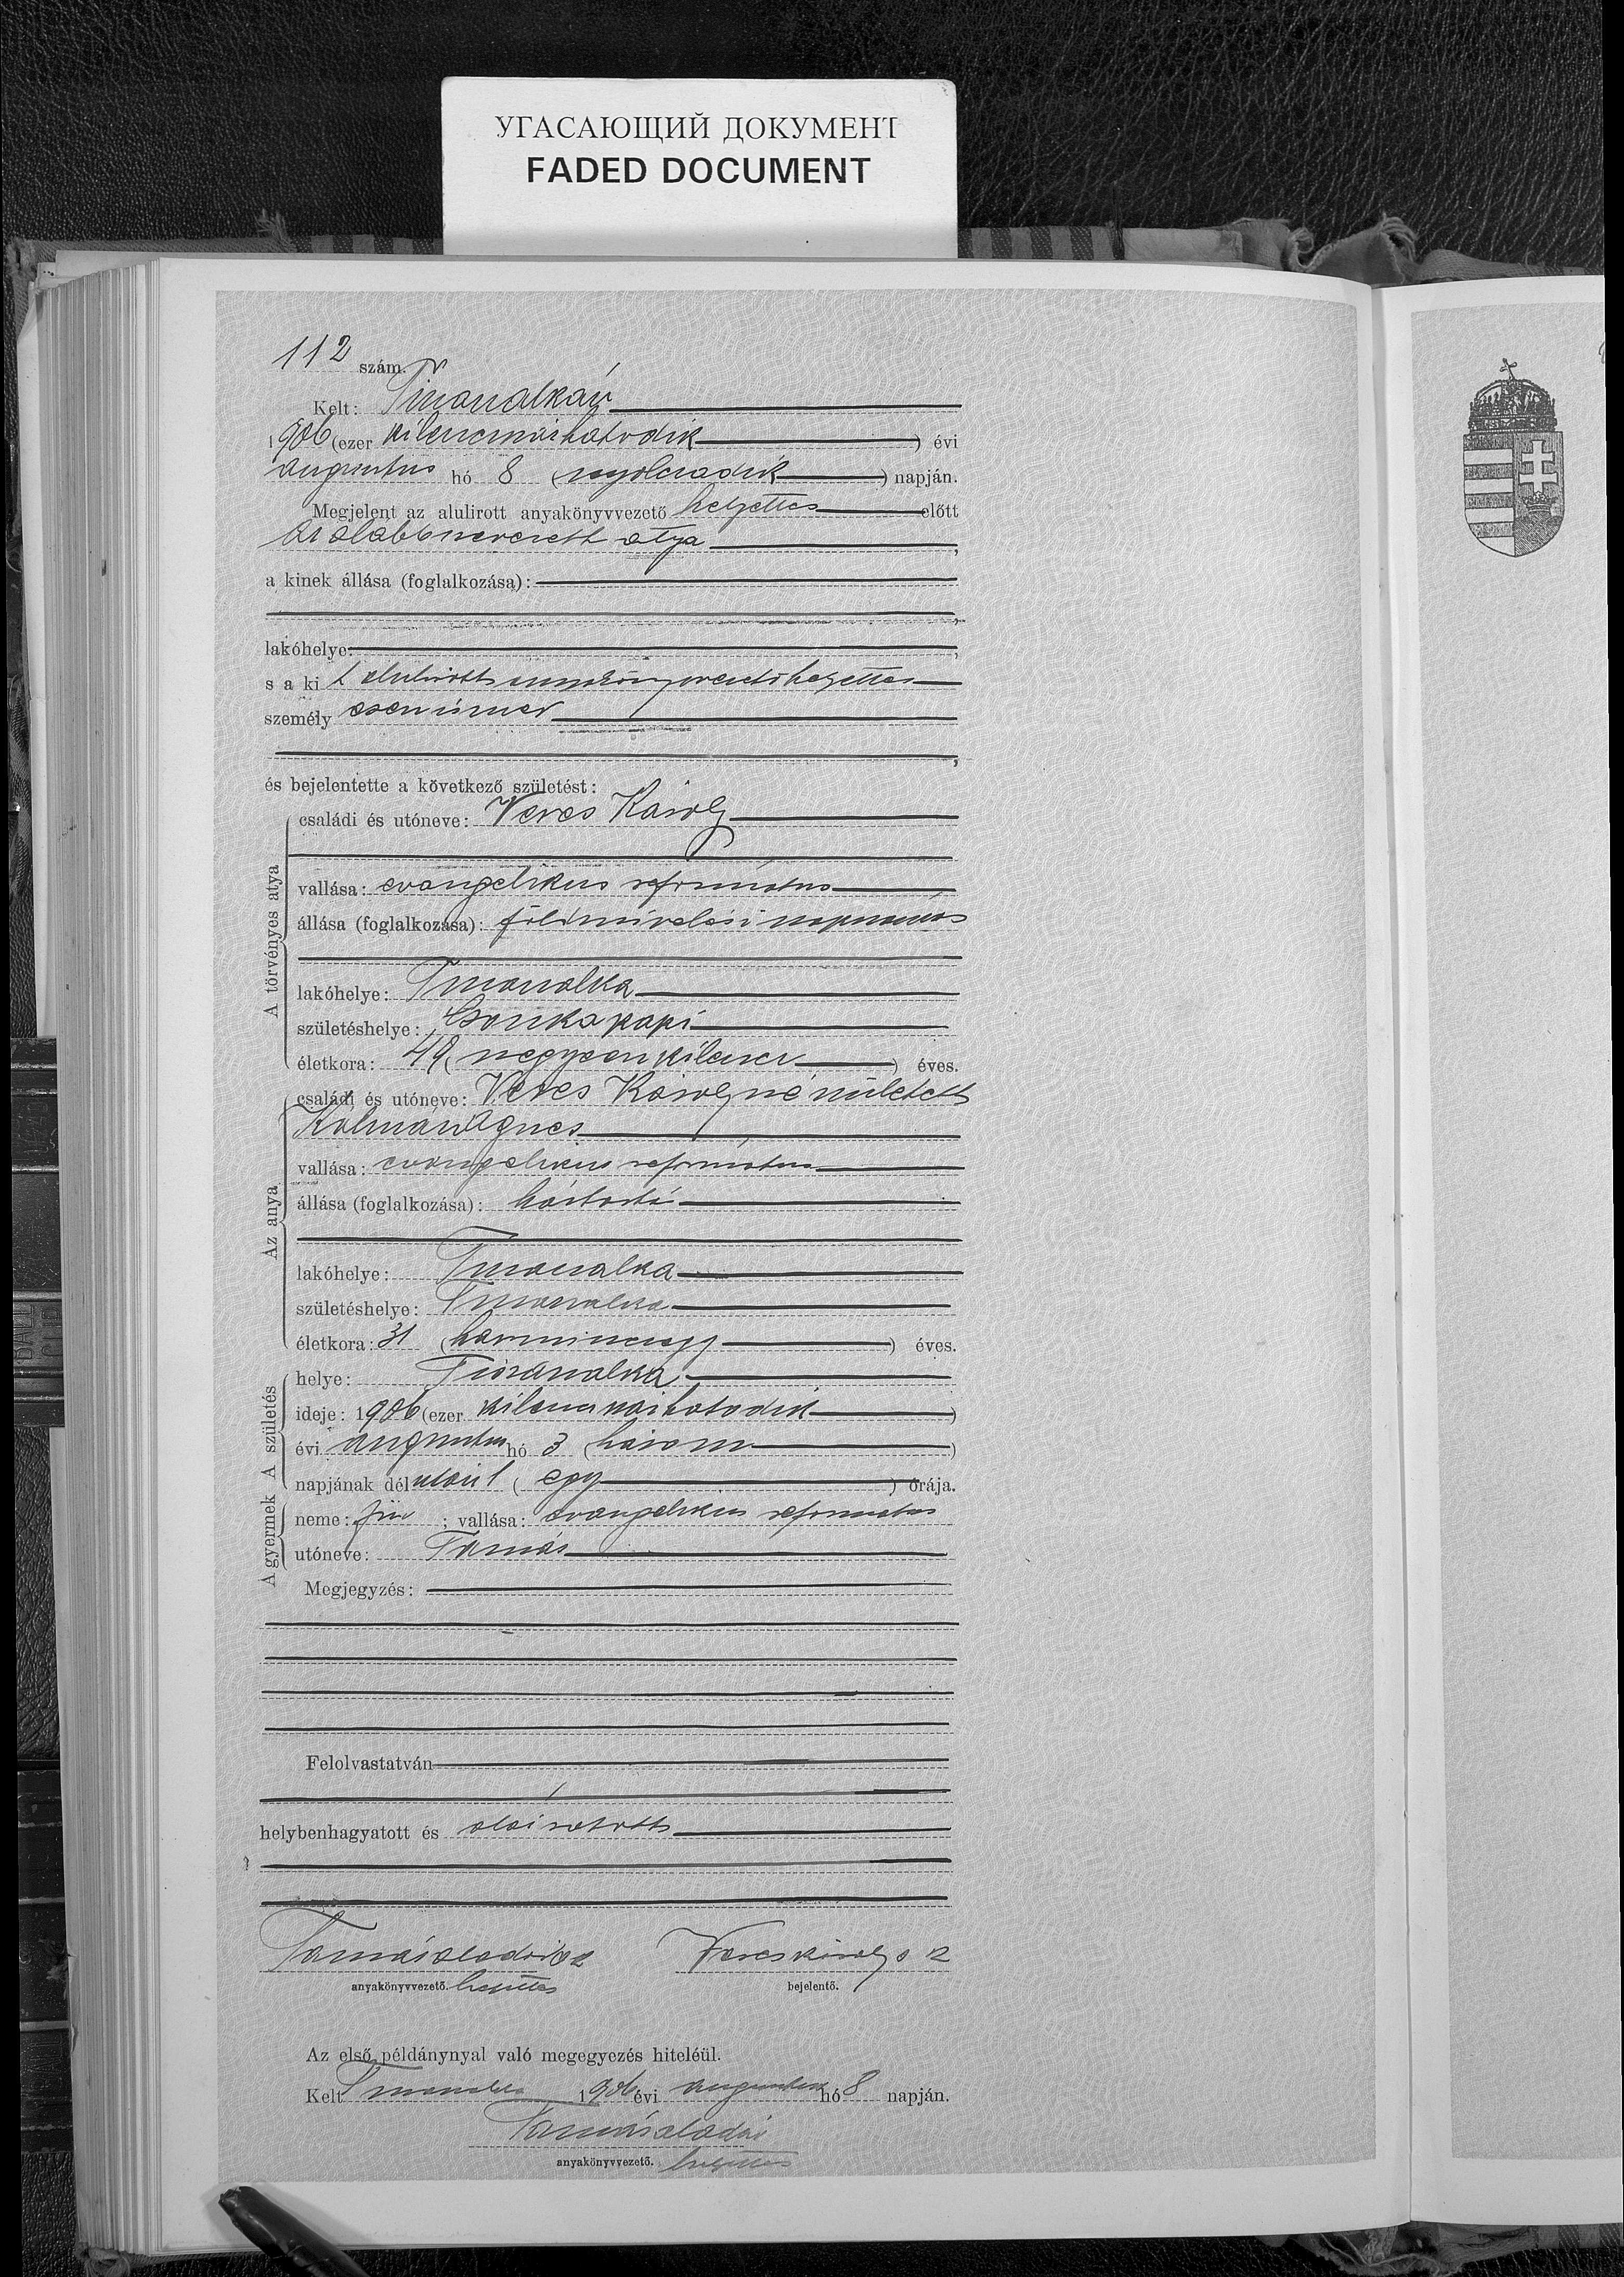 УГАСАЮЩИЙ ДОКУМЕНТ
FADED DOCUMENT
112 szám.
Kelt: Tiszaszalkán
1906 (ezer kilencszázhatodik) évi
augusztus hó 8 (nyolczadik) napján.
Megjelent az alulirott anyakönyvvezető helyettes előtt
az alább nevezett atya,
a kinek állása (foglalkozása):
lakóhelye:
s a ki t alulirott anyakönyvvezető helyettes
személy esen ismer
és bejelentette a következő születést:
A törvényes atya
családi és utóneve: Veres Károly
vallása: evangelikus református
állása (foglalkozása): földmivelési napszámos
lakóhelye: Tiszaszalka
születéshelye:
életkora: 49 (negyvenkilencz) éves.
Az anya
családi és utóneve: Veres Károlyné született
Kálmán Ágnes
vallása: evangelikus református
állása (foglalkozása): háztartás
lakóhelye: Tiszaszalka
születéshelye: Tiszaszalka
életkora: 31 (harminczegy) éves.
A születés
helye: Tiszaszalka
ideje: 1906 (ezer kilenczszázhatodik)
évi augusztus hó 3 (három)
napjának délután 1 (egy) órája.
A gyermek
neme: fiu; vallása: evangelikus református
utóneve: Tamás
Megjegyzés:
Felolvastatván
helybenhagyatott és aláiratott
Tamás Aladár Veres Károly s k
anyakönyvvezető. helyettes bejelentő.
Az első példánynyal való megegyezés hiteléül.
Kelt Tiszaszalka 1906 évi augusztus hó 8 napján.
Tamás Aladár
anyakönyvvezető. helyettes